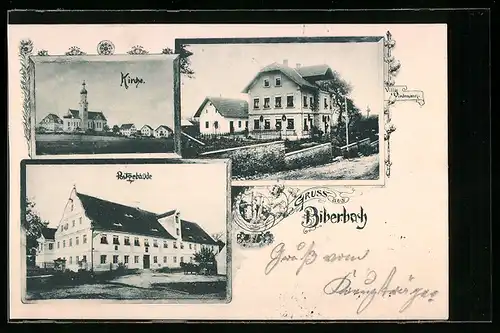 Kirche.
Villa
Postgebäude
GRUSS aus
Biberbach
Gruß vom